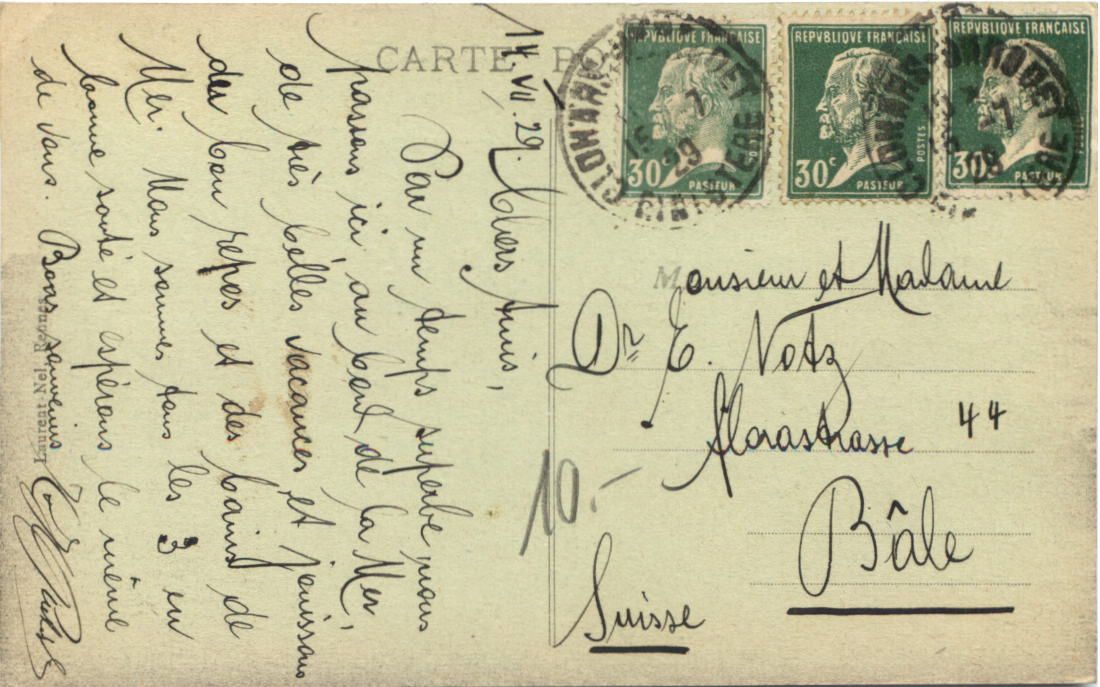 CARTE PO
14. VII. 29. Chers Amis,
Par un temps superbe, nous
passons ici, au bord de la Mer,
de très belles vacances et jouissons
du bon repos et des bains de
Mer. Nous sommes tous les 3 en
bonne santé et espérons le même
de vous. Bons souvenirs
Laurent-Nel, Rennes
REPVBLIQUE FRANÇAISE
30
PASTEUR
REPVBLIQUE FRANÇAISE
POSTES
30c
PASTEUR
REPVBLIQUE FRANÇAISE
30
PASTEUR
CLOHARS-
FINISTERE
7
29
Monsieur et Madame
Dr E. Notz
Florastrasse 44
Bâle
Suisse
10.-